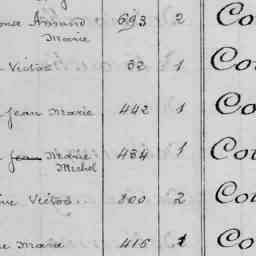 Armand 693 2 Co
Marie
Victor 32 1 Co
Jean Marie 442 1 Co
Jean Marie 434 1 Co
Michel
Victor 800 2 Co
Marie 416 1 Co